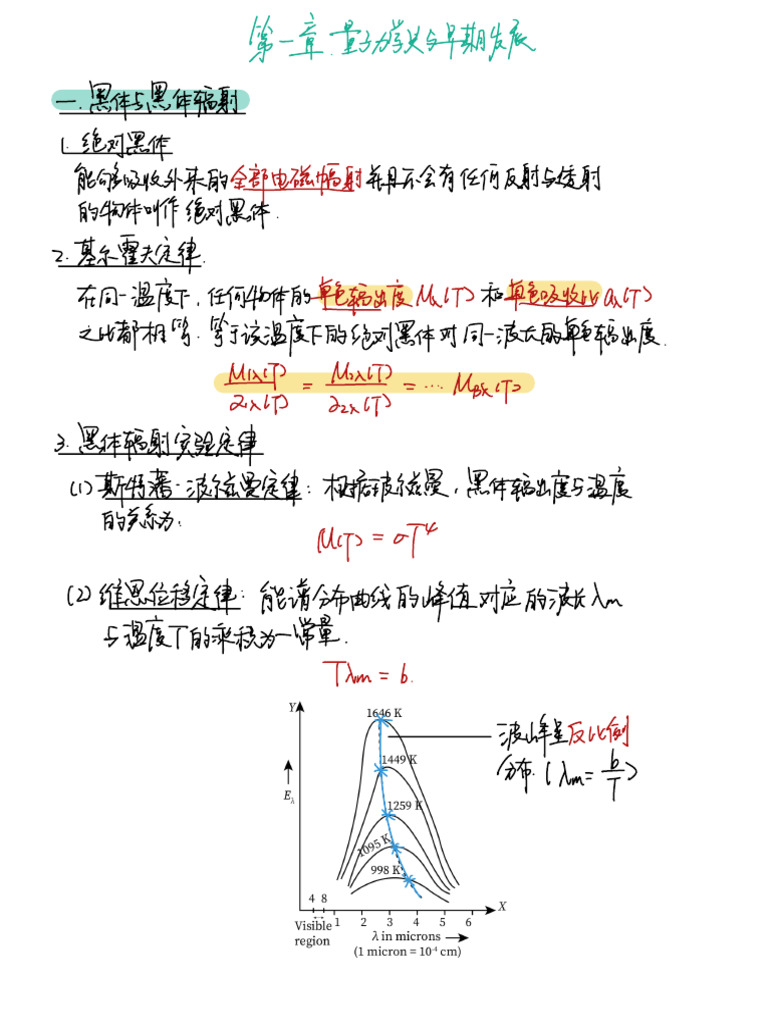 第一章 量子力学与早期发展
一. 黑体与黑体辐射
1. 绝对黑体
能够吸收外来的全部电磁辐射并且不会有任何反射与透射
的物体叫作绝对黑体.
2. 基尔霍夫定律.
在同一温度下, 任何物体的单色辐出度 Mλ(T) 和单色吸收比 αλ(T)
之比都相等. 等于该温度下的绝对黑体对同一波长的单色辐出度.
M1λ(T)/α1λ(T) = M2λ(T)/α2λ(T) = ··· MBλ(T)
3. 黑体辐射实验定律
(1) 斯特藩-波尔兹曼定律: 根据玻尔兹曼, 黑体辐出度与温度
的关系为:
M(T) = σT⁴
(2) 维恩位移定律: 能谱分布曲线的峰值对应的波长 λm
与温度T的乘积为一常量.
Tλm = b.
Y
1646 K
波峰呈反比例
分布. (λm = b/T)
1449 K
Eλ
1259 K
1095 K
998 K
4 8
X
1 2 3 4 5 6
Visible
region
λ in microns
(1 micron = 10⁻⁴ cm)